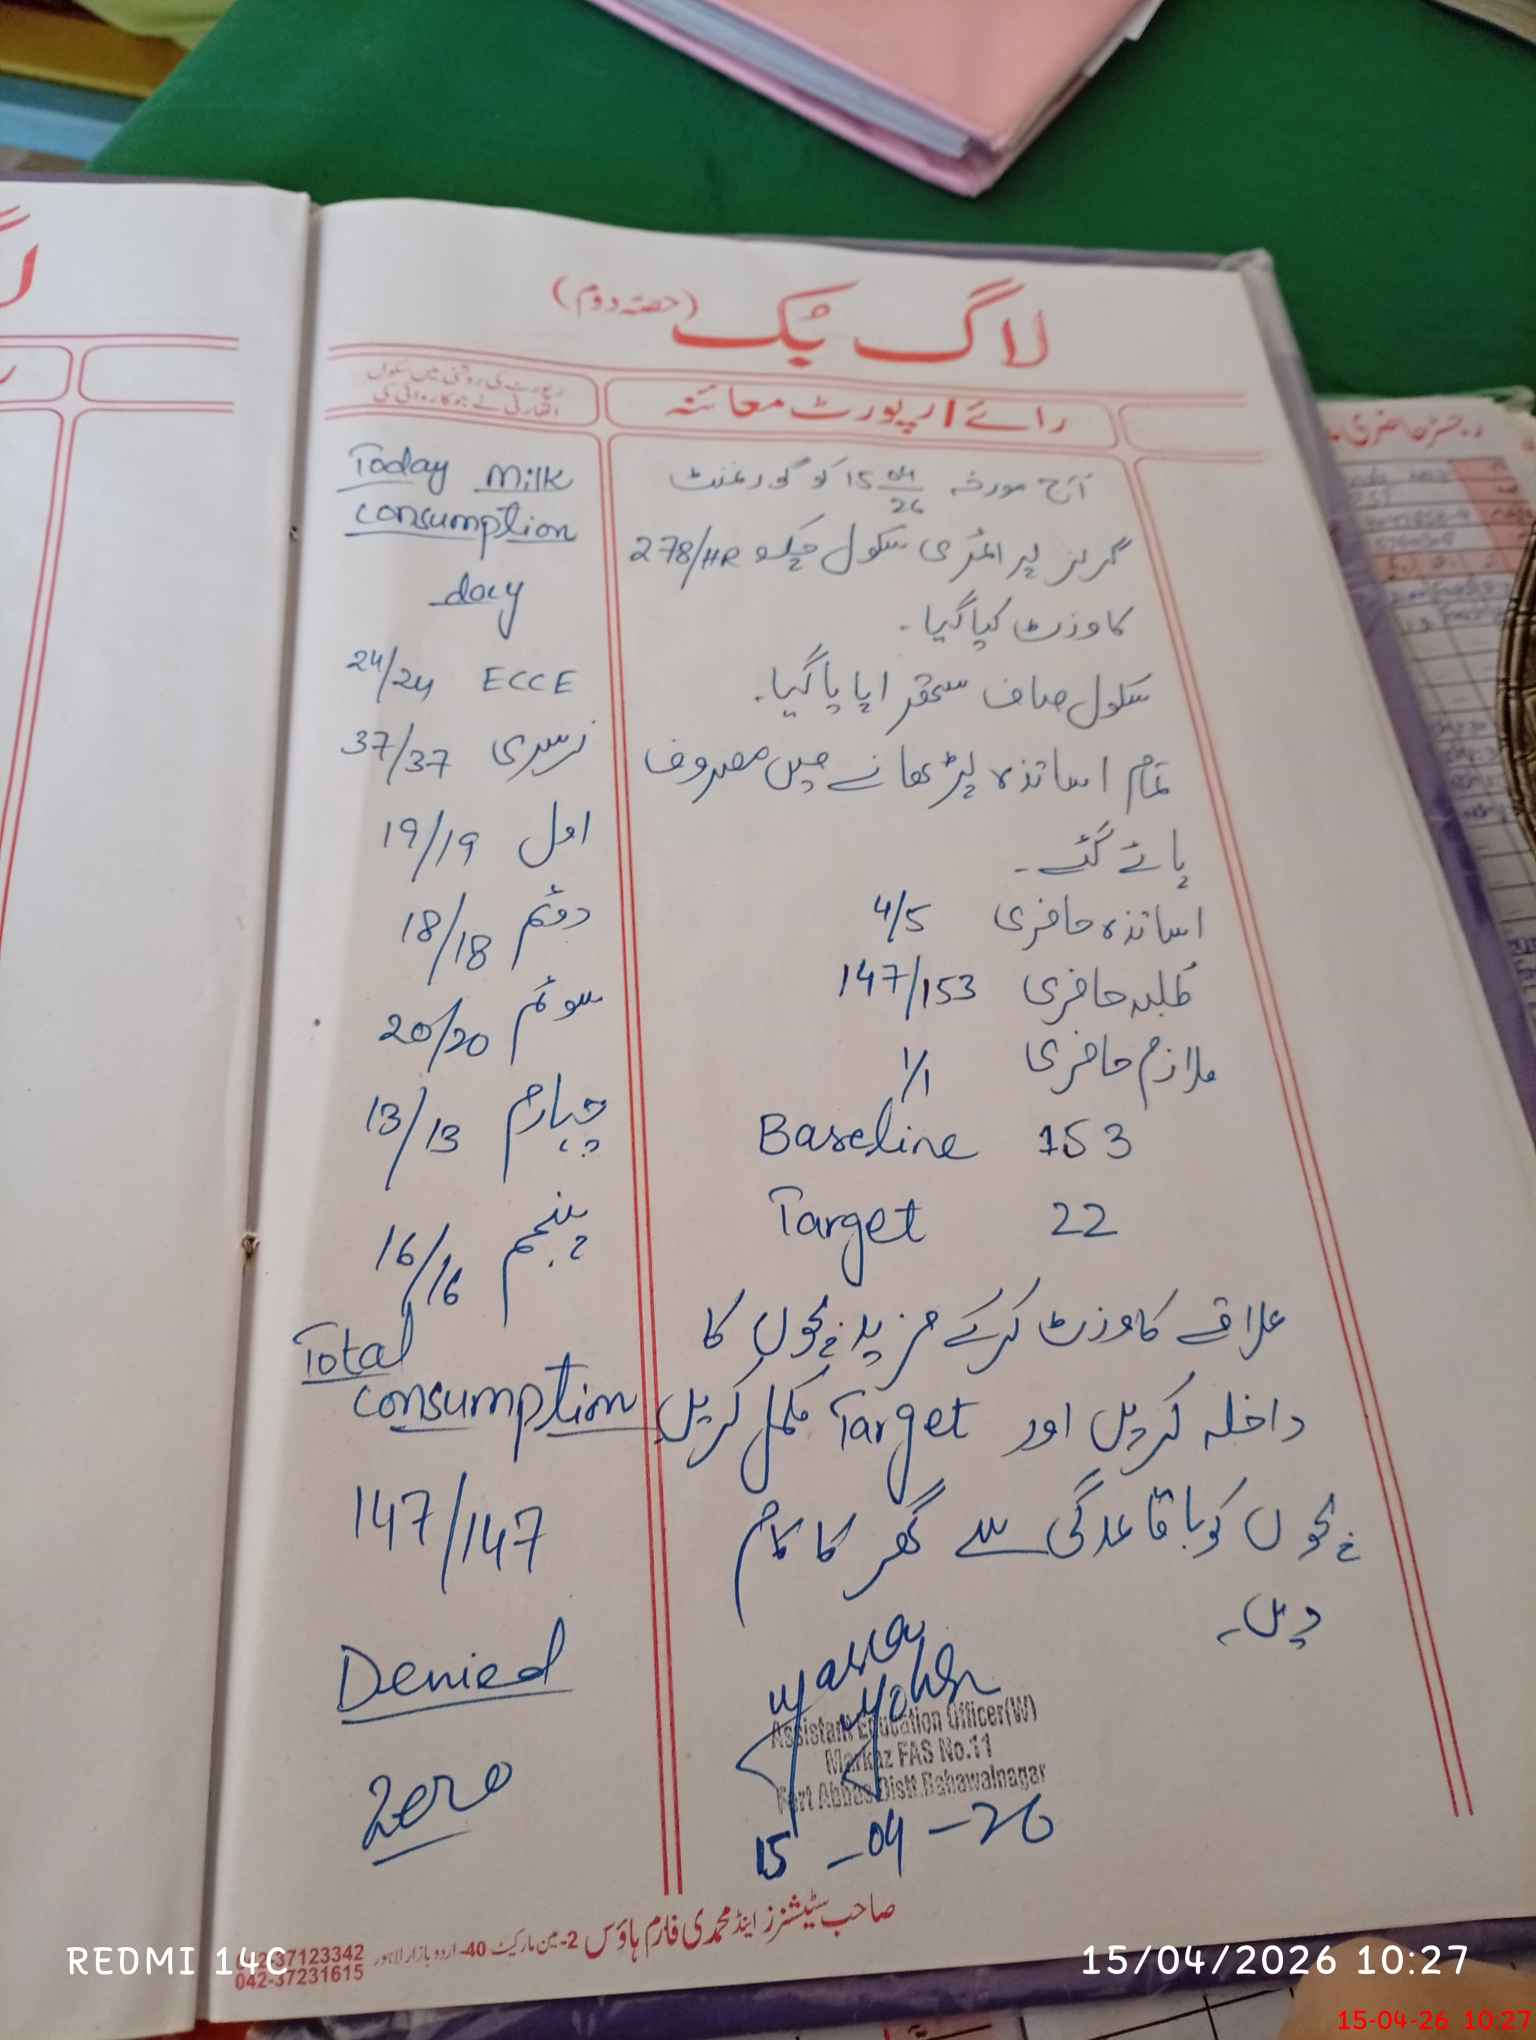 لاگ بک (حصہ دوم)
رائے / رپورٹ معائنہ
رپورٹ کی روشنی میں سکول
اتھارٹی نے جو کاروائی کی
آج مورخہ 15 04/26 کو گورنمنٹ
گرلز پرائمری سکول چک 278/HR
کا وزٹ کیا گیا۔
سکول صاف ستھرا پایا گیا۔
تمام اساتذہ پڑھانے میں مصروف
پائے گئے۔
اساتذہ حاضری 4/5
طلبہ حاضری 147/153
ملازم حاضری 1/1
Baseline 153
Target 22
علاقے کا وزٹ کرکے مزید بچوں کا
داخلہ کریں اور Target مکمل کریں
بچوں کو باقاعدگی سے گھر کا کام
دیں۔
Assistant Education Officer(W)
Markaz FAS No.11
Fort Abbas Distt.Bahawalnagar
15-04-26
Today Milk
Consumption
day
24/24 ECCE
37/37 نرسری
19/19 اول
18/18 دوئم
20/20 سوئم
13/13 چہارم
16/16 پنجم
Total
Consumption
147/147
Denied
Zero
صاحب سٹیشنرز اینڈ محمدی فارم ہاؤس 2-مین مارکیٹ 40-اردو بازار لاہور
042-37123342
042-37231615
REDMI 14C
15/04/2026 10:27
15-04-26 10:27